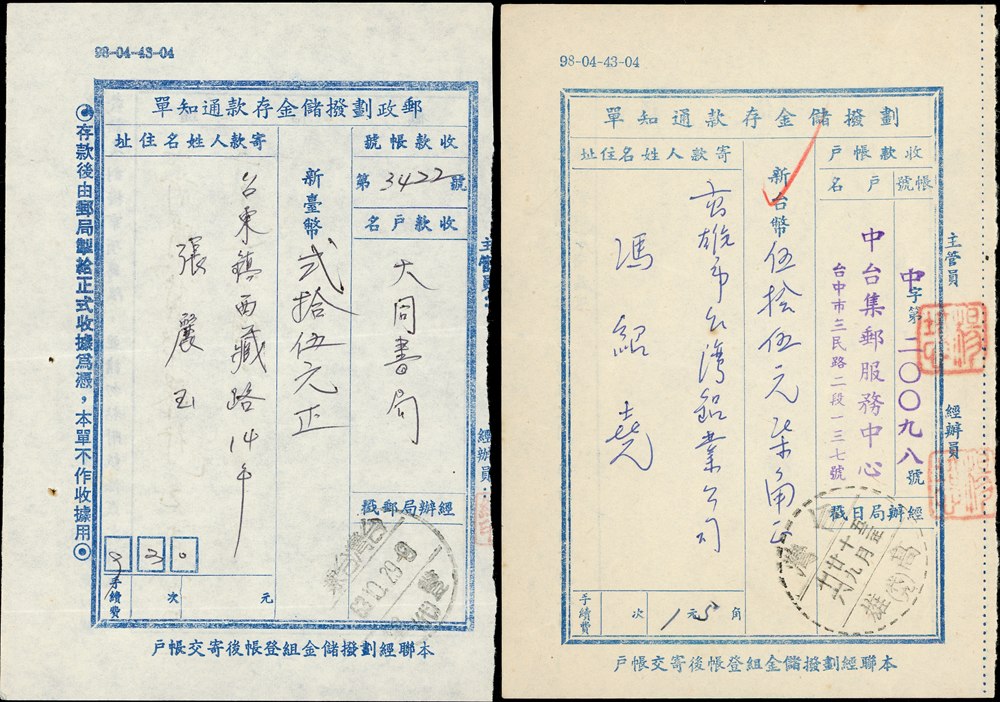 98-04-43-04
郵政劃撥儲金存款通知單
收款帳號
第3422號
收款戶名
大同書局
經辦局郵戳
新臺幣
弍拾伍元正
寄款人姓名住址
台東鎮西藏路14号
張麗玉
930
手續費
次
元
主管員:
經辦員:
存款後由郵局掣給正式收據爲憑,本單不作收據用
本聯經劃撥儲金組登帳後寄交帳戶
98-04-43-04
劃撥儲金存款通知單
收款帳戶
帳號
戶名
中字第二〇〇九八號
中台集郵服務中心
台中市三民路二段一三七號
經辦局日戳
新台幣
伍拾伍元柒角正
寄款人姓名住址
高雄市台灣鋁業公司
馮紹堯
手續費
次
1元5角
主管員
經辦員
本聯經劃撥儲金組登帳後寄交帳戶